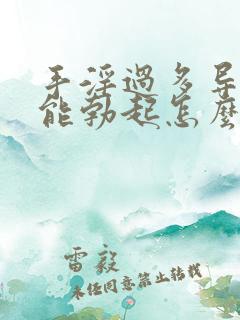 手淫過多导
能勃起怎麽
雷毅
未经同意禁止转载